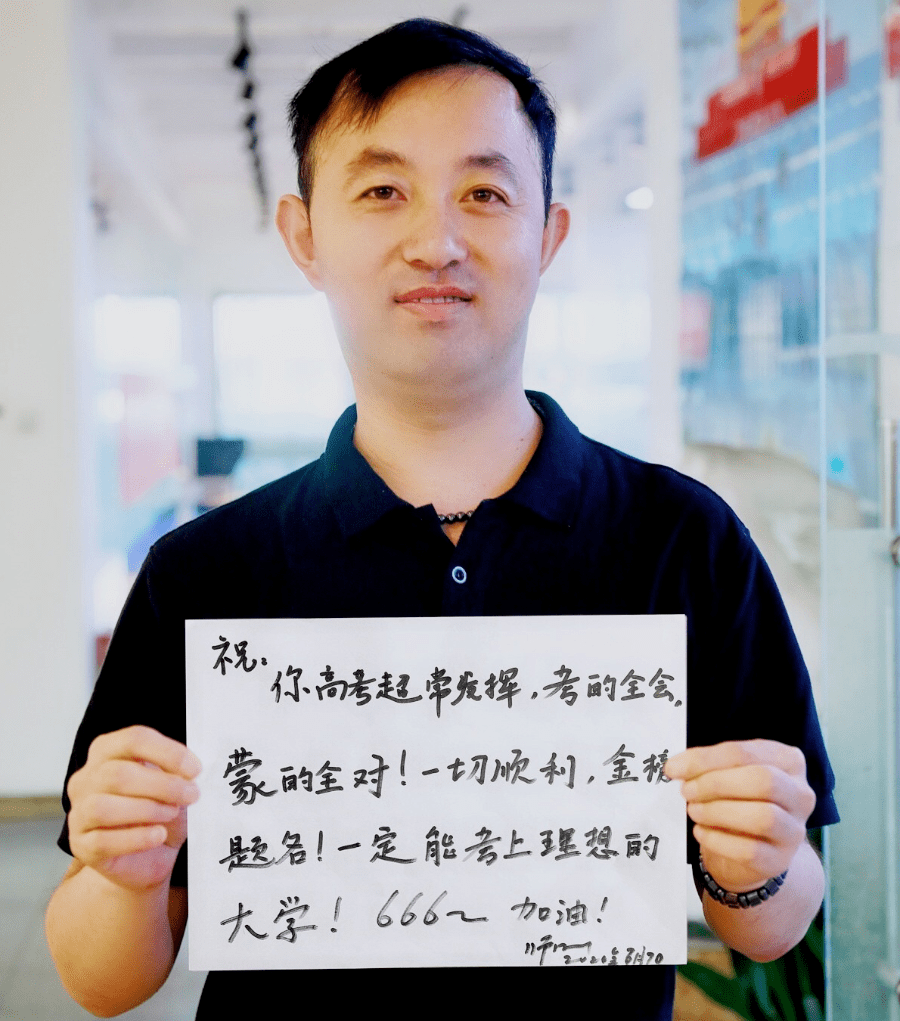 祝：
你高考超常发挥，考的全会。
蒙的全对！一切顺利，金榜
题名！一定能考上理想的
大学！ 666~ 加油！